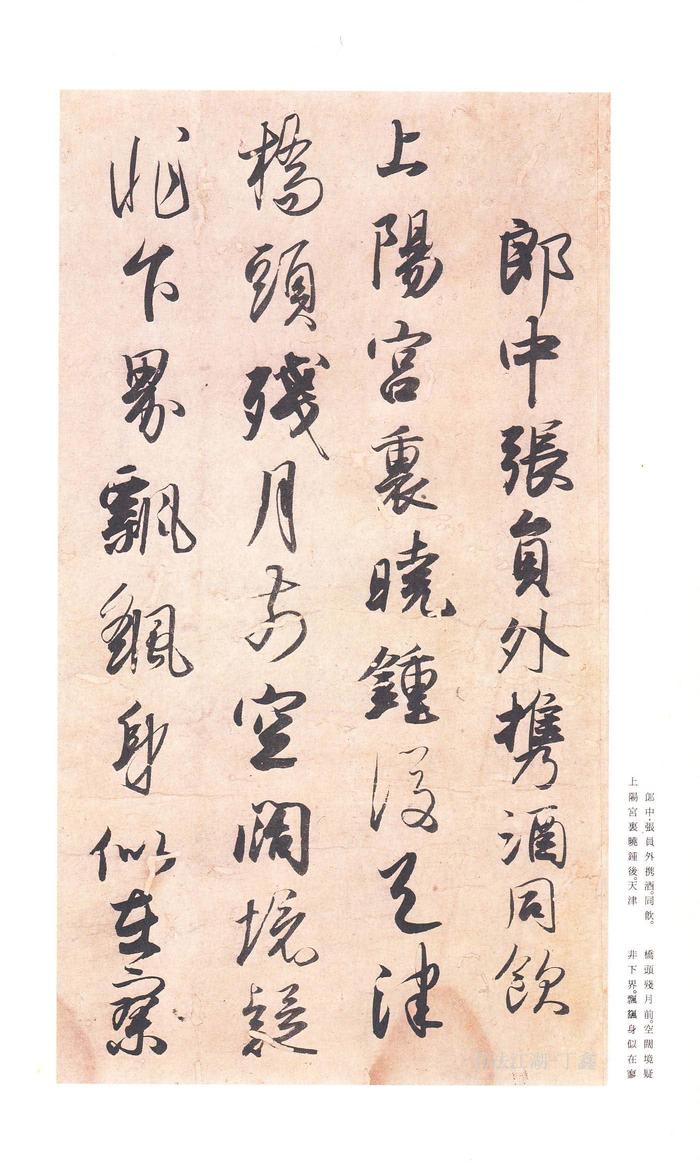 郎中張員外携酒同飲
上陽宮裏曉鍾後天津
橋頭殘月前空闊境疑
非下界飄颻身似在寥
郎中·張員外携酒。同飲。
上陽宮裏曉鍾後。天津
橋頭殘月前。空闊境疑
非下界。飄颻身似在寥
法江湖·丁鑫